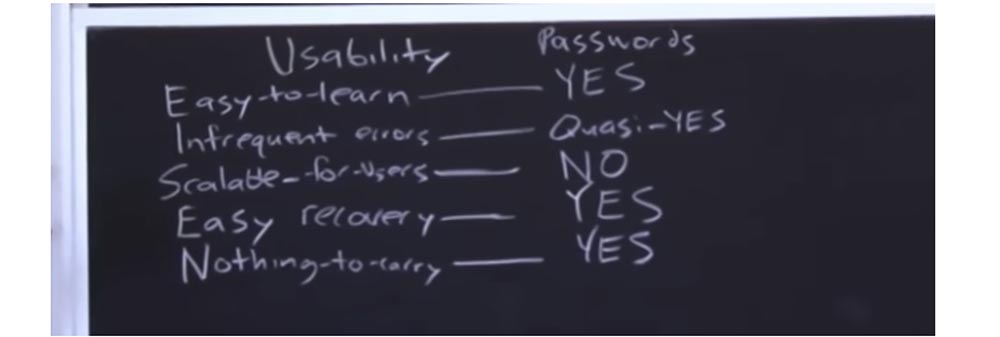 Usability Passwords
Easy-to-learn — YES
Infrequent errors — Quasi-YES
Scalable-for-users — NO
Easy recovery — YES
Nothing-to-carry — YES